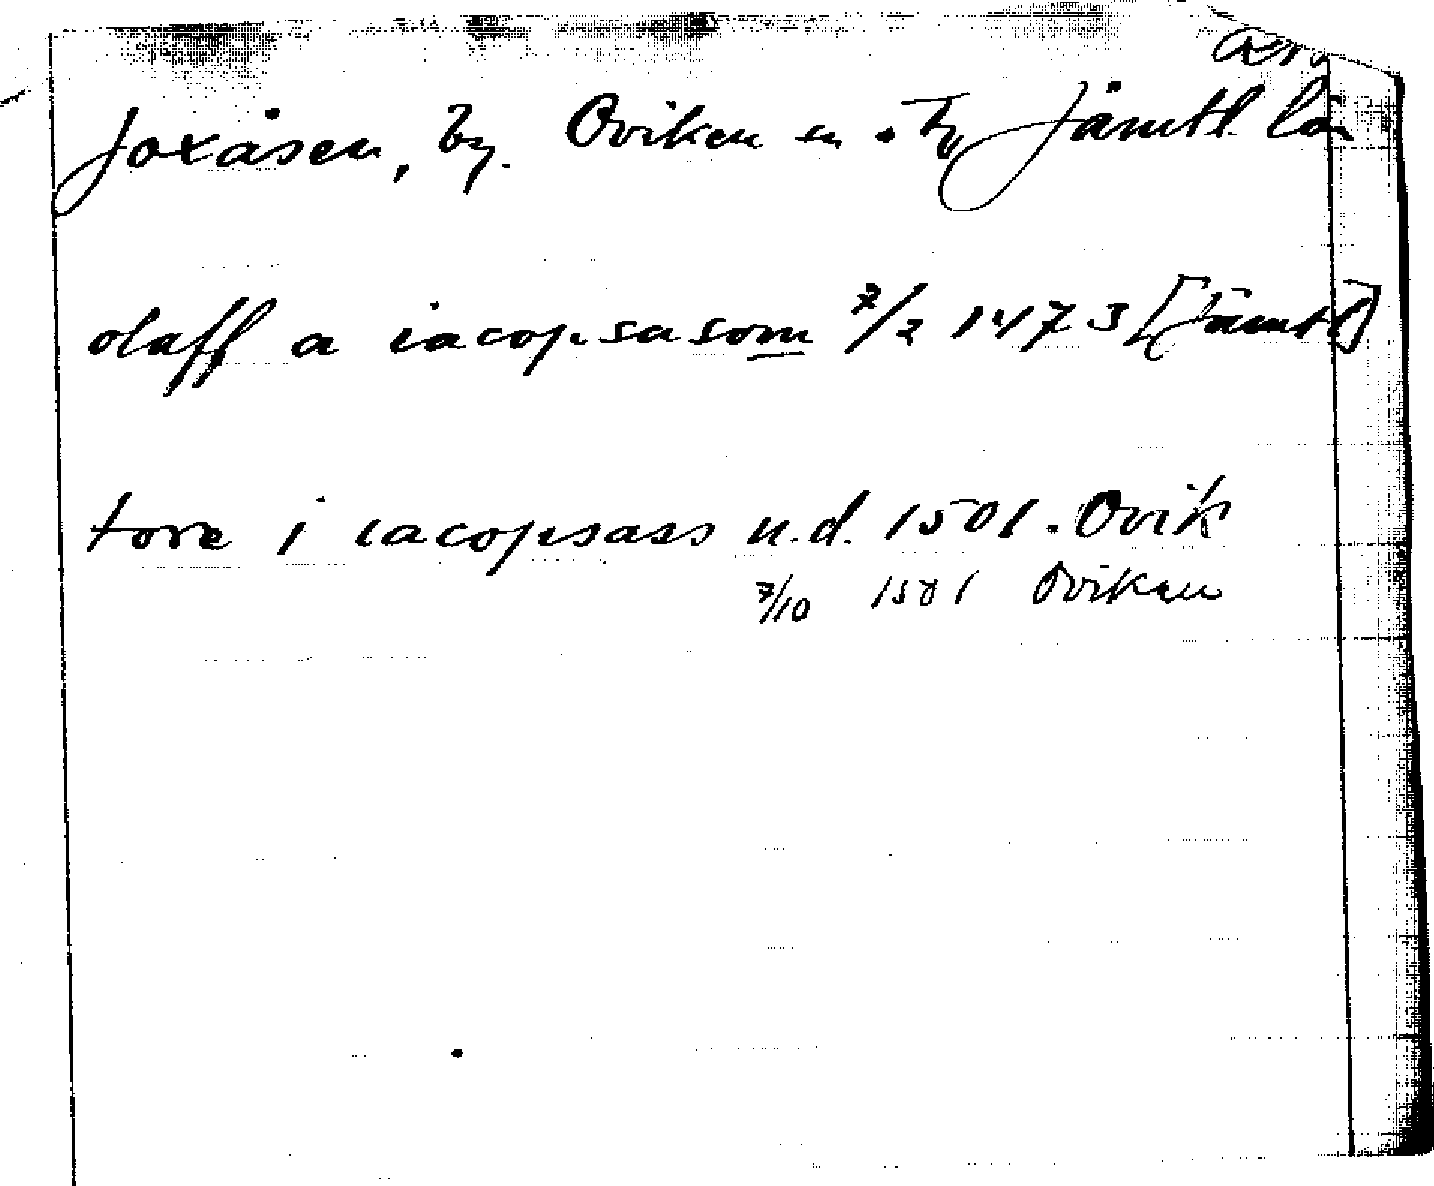 Joxåsen, by. Oviken sn. Jämtl. län
olaff a iacopsasom 7/2 1473 [Jämtl]
tore i iacopsass u.d. 1501. Ovik
7/10 1501 Oviken